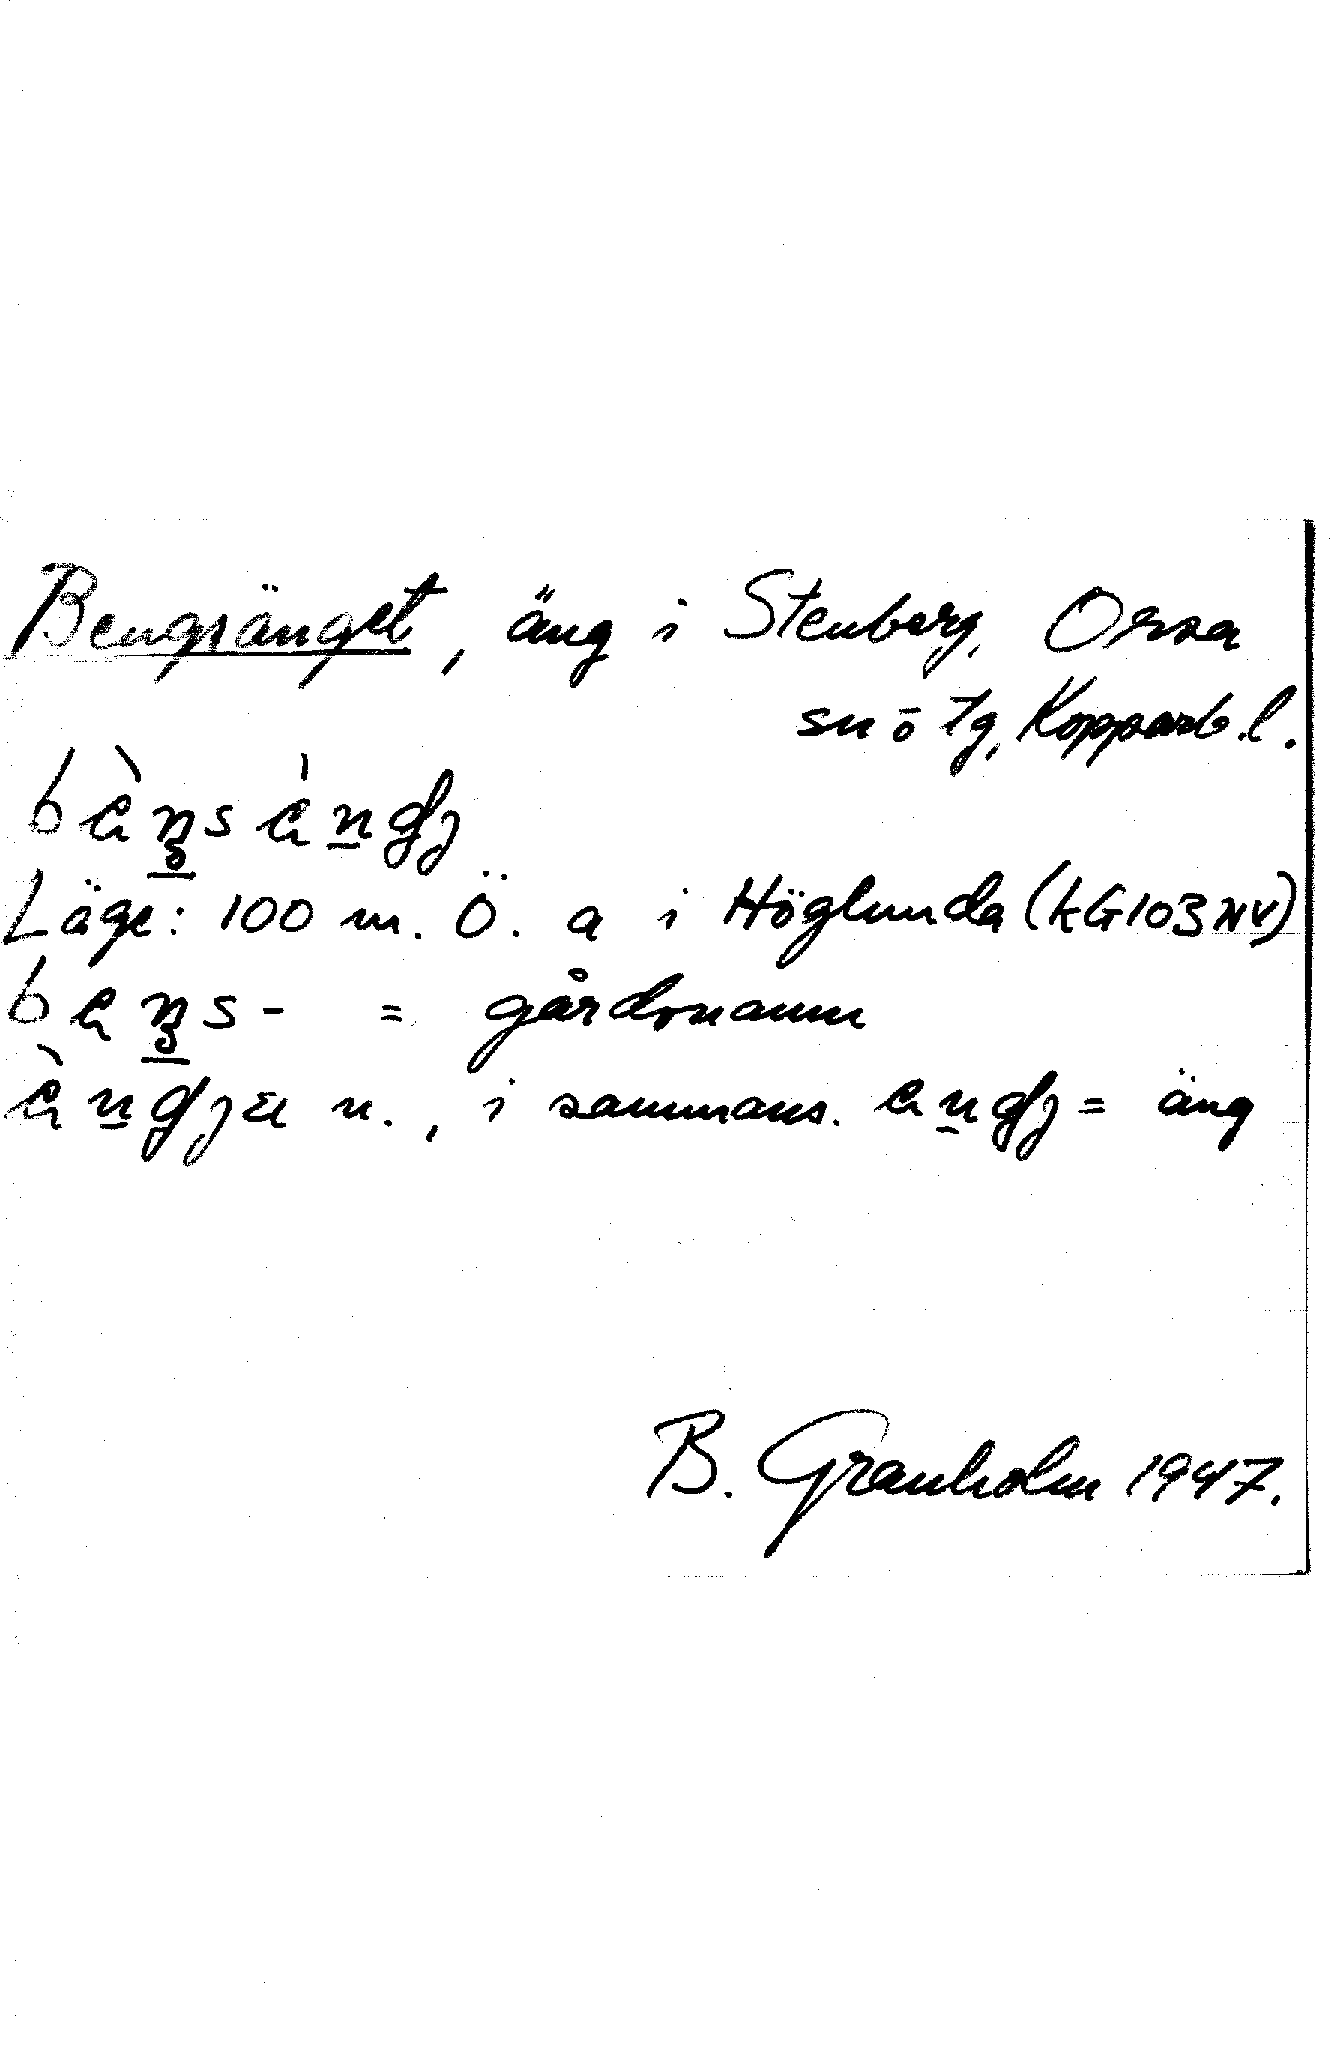 Bengsänget, äng i Stenberg, Orsa
sn o tg, Kopparb. l.
Läge: 100 m. Ö. a i Höglunda (kG103NV)
= gårdsnamn
n., i sammans. = äng
B. Granholm 1947.